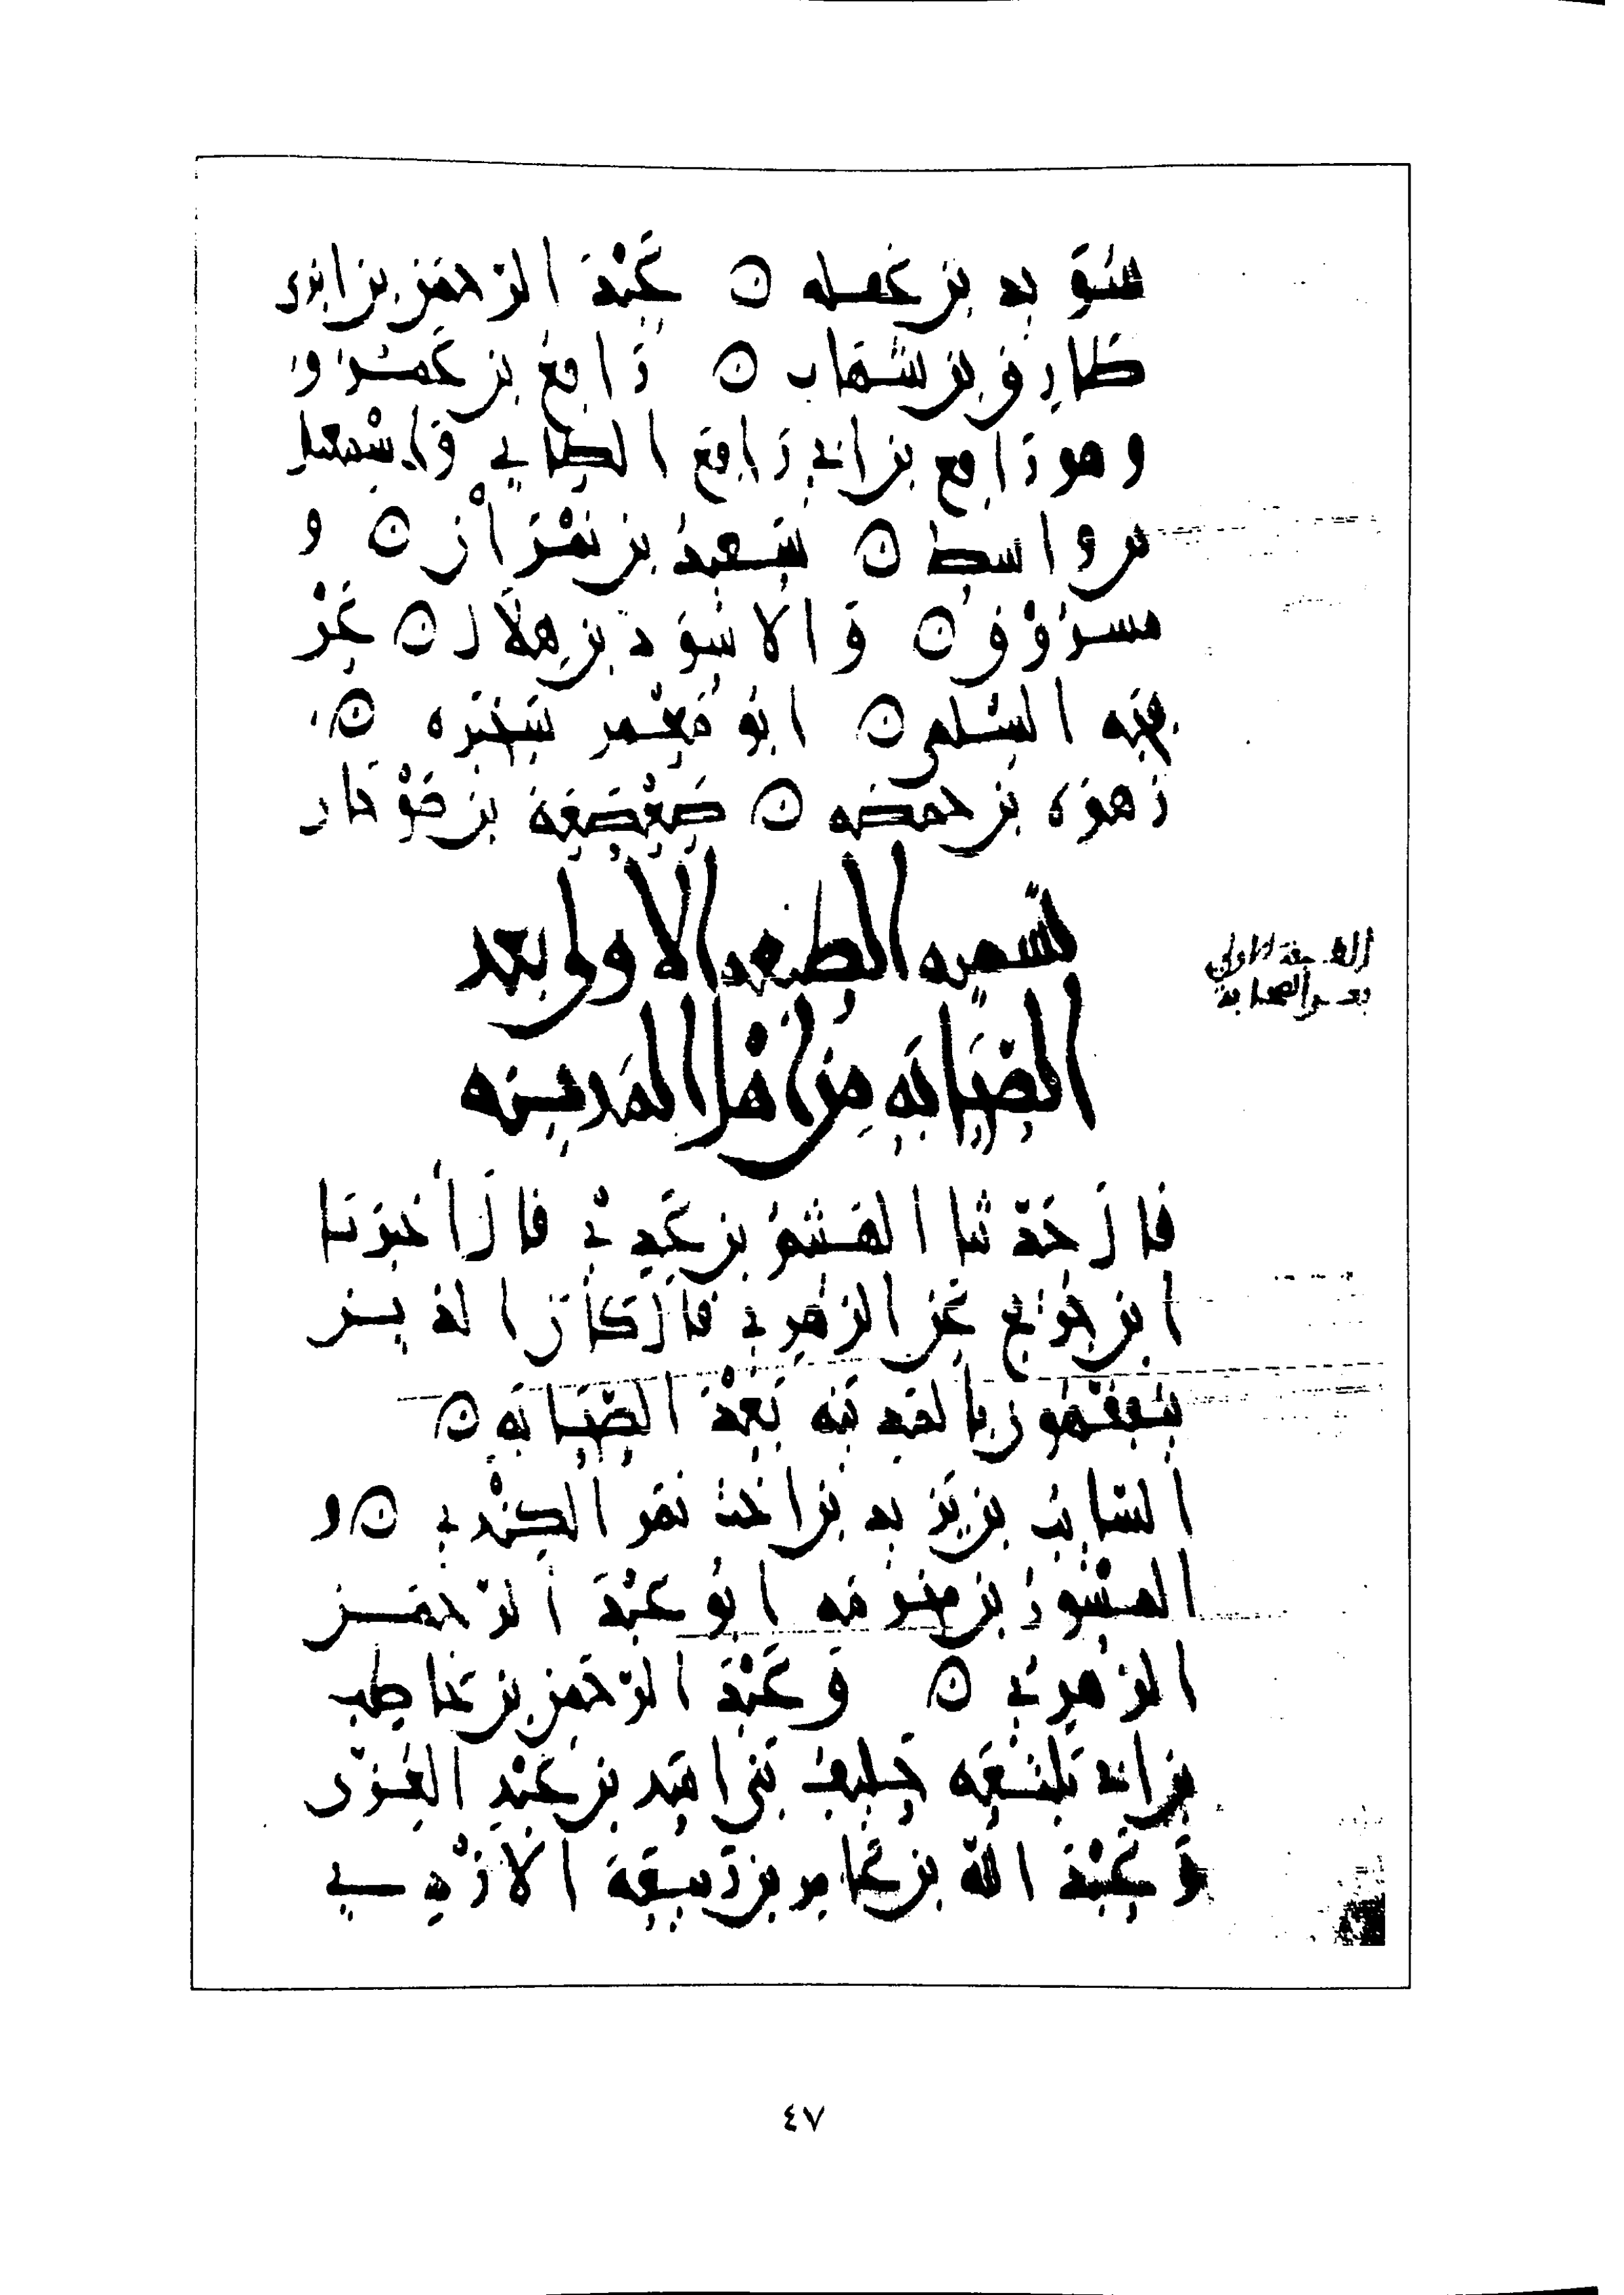 سويد بن غفله ۝ عَبْدُ الرَّحمَن بن ابزى
طارق بن شهاب ۝ رَافِعُ بن عَمْرو
وهو رَافع بن ابي رَافِع الطاي وَاِسْمعيل
بن واسط ۝ سَعِيدُ بن نِمْرَان ۝ و
مسرُوْق ۝ وَالاسوَد بن هِلَال ۝ عَمْرو
السلمي ۝ ابُو مَعْمر سَخبَره ۝
زهرَه بن حمضه ۝ صَعْصَعَة بن صَوْحَان
تسميه الطبقه الاولى بعد
الصَّحَابَه مِن اهْل المَدِينه
الطبقة الاولى
بعد الصحابة
قالَ حَدَّثنا الهَيْثمُ بن عَدِيّ قالَ أخبَرَنا
ابن جرَيْج عَن الزُّهرِي قَال كَانَ الذين
يتفقّهُون بالمَدِينَه بَعْدَ الصَّحَابَه ۝
السَّايب بن يَزيد بن اخت نَمِر الكِنْدِي ۝ و
المِسْوَر بن مَخرَمَه ابُو عَبْد الرّحمَن
الزهرِيّ ۝ وَعَبْدُ الرَّحمَن بن حَاطِب
بن ابي بَلتَعَه حَلِيف بَنِي اسَد بن عَبْدِ العُزّى
وَعَبْدُ الله بن عَامِر بن رَبِيعَة الازْدِي
٤٧